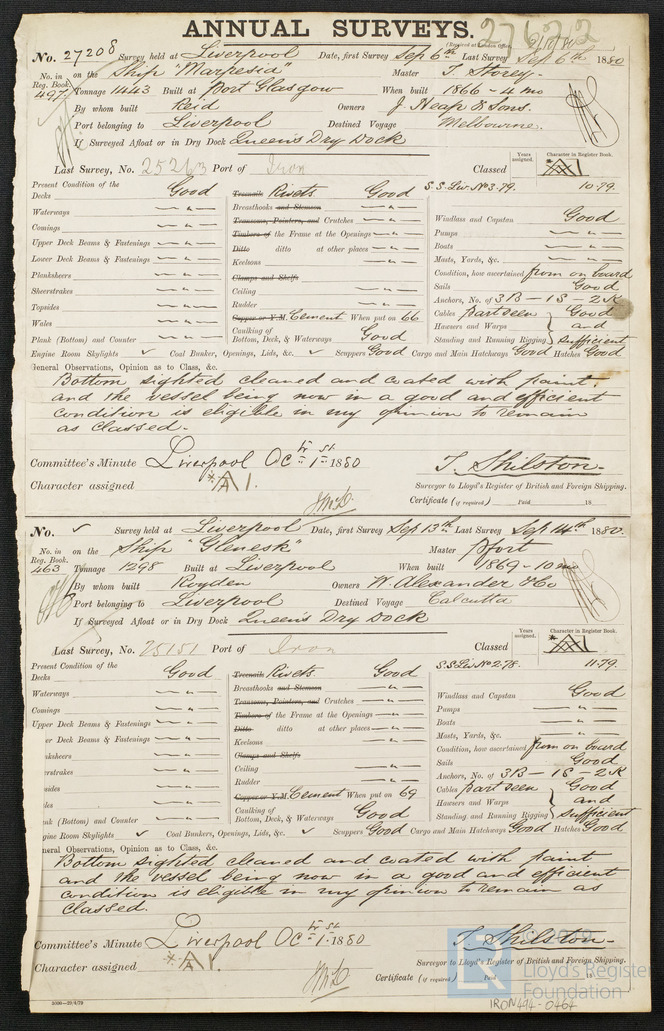 ANNUAL SURVEYS. 27622
(Received at London Office,
No. 27208 Survey held at Liverpool Date, first Survey Sep 6th Last Survey Sep 6th 1880
No. in Reg. Book. on the Ship "Marpesia" Master T. Storey.
497 Tonnage 1443 Built at Port Glasgow When built 1866 - 4 mo
By whom built Reid Owners J. Heap & Sons.
Port belonging to Liverpool Destined Voyage Melbourne.
If Surveyed Afloat or in Dry Dock Queen's Dry Dock
Years assigned. Character in Register Book.
Last Survey, No. 25263 Port of Iron Classed
S.S. Liv. No 3.79. 10.79.
Present Condition of the
Decks Good Treenails Rivets Good
Waterways — „ — Breasthooks and Stemson — „ — Windlass and Capstan Good
Comings — „ — Transoms, Pointers, and Crutches — „ — Pumps — „ —
Upper Deck Beams & Fastenings — „ — Timbers of the Frame at the Openings — „ — Boats — „ —
Lower Deck Beams & Fastenings — „ — Ditto ditto at other places — „ — Masts, Yards, &c. — „ —
Planksheers — „ — Keelsons — „ — Condition, how ascertained from on board
Sheerstrakes — „ — Clamps and Shelfs Sails Good
Topsides — „ — Ceiling — „ — Anchors, No. of 3B - 1S - 2K
Wales — „ — Rudder — „ — Cables part seen Good
Copper or Y.M. Cement When put on 66 Hawsers and Warps and
Plank (Bottom) and Counter — „ — Caulking of Bottom, Deck, & Waterways Good Standing and Running Rigging sufficient
Engine Room Skylights ✓ Coal Bunker, Openings, Lids, &c. ✓ Scuppers Good Cargo and Main Hatchways Good Hatches Good
General Observations, Opinion as to Class, &c.
Bottom sighted cleaned and coated with paint,
and the vessel being now in a good and efficient
condition is eligible in my opinion to remain
as classed.
Committee's Minute Liverpool Octbr 1st 1880 T. Shilston.
Character assigned *A1. Surveyor to Lloyd's Register of British and Foreign Shipping.
Certificate (if required) Paid 18
No. ✓ Survey held at Liverpool Date, first Survey Sep 13th Last Survey Sep 14th 1880.
No. in Reg. Book. on the Ship "Glenesk" Master
463 Tonnage 1298 Built at Liverpool When built 1869 - 10 mo
By whom built Royden Owners W. Alexander & Co
Port belonging to Liverpool Destined Voyage Calcutta
If Surveyed Afloat or in Dry Dock Queen's Dry Dock
Years assigned. Character in Register Book.
Last Survey, No. 25151 Port of Iron Classed
S.S. Liv No 2.78. 11.79
Present Condition of the
Decks Good Treenails Rivets Good
Waterways — „ — Breasthooks and Stemson — „ — Windlass and Capstan Good
Comings — „ — Transoms, Pointers, and Crutches — „ — Pumps — „ —
Upper Deck Beams & Fastenings — „ — Timbers of the Frame at the Openings — „ — Boats — „ —
er Deck Beams & Fastenings — „ — Ditto ditto at other places — „ — Masts, Yards, &c. — „ —
nksheers — „ — Keelsons — „ — Condition, how ascertained from on board
erstrakes — „ — Clamps and Shelfs Sails Good
sides — „ — Ceiling — „ — Anchors, No. of 3B - 1S - 2K
es — „ — Rudder — „ — Cables part seen Good
Copper or Y.M. Cement When put on 69 Hawsers and Warps and
nk (Bottom) and Counter — „ — Caulking of Bottom, Deck, & Waterways Good Standing and Running Rigging sufficient
gine Room Skylights ✓ Coal Bunkers, Openings, Lids, &c. ✓ Scuppers Good Cargo and Main Hatchways Good Hatches Good
neral Observations, Opinion as to Class, &c.
Bottom sighted cleaned and coated with paint
and the vessel being now in a good and efficient
condition is eligible in my opinion to remain as
classed.
Committee's Minute Liverpool Octbr 1st 1880 T. Shilston.
Character assigned *A1. Surveyor to Lloyd's Register of British and Foreign Shipping.
Certificate (if required) Paid 18
LR
Lloyd's Register
Foundation
IRON494-0464